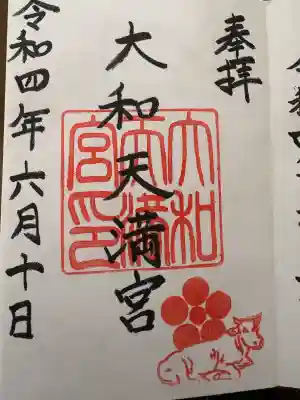 奉拝
大和天満宮
令和四年六月十日
大和
天満
宮印